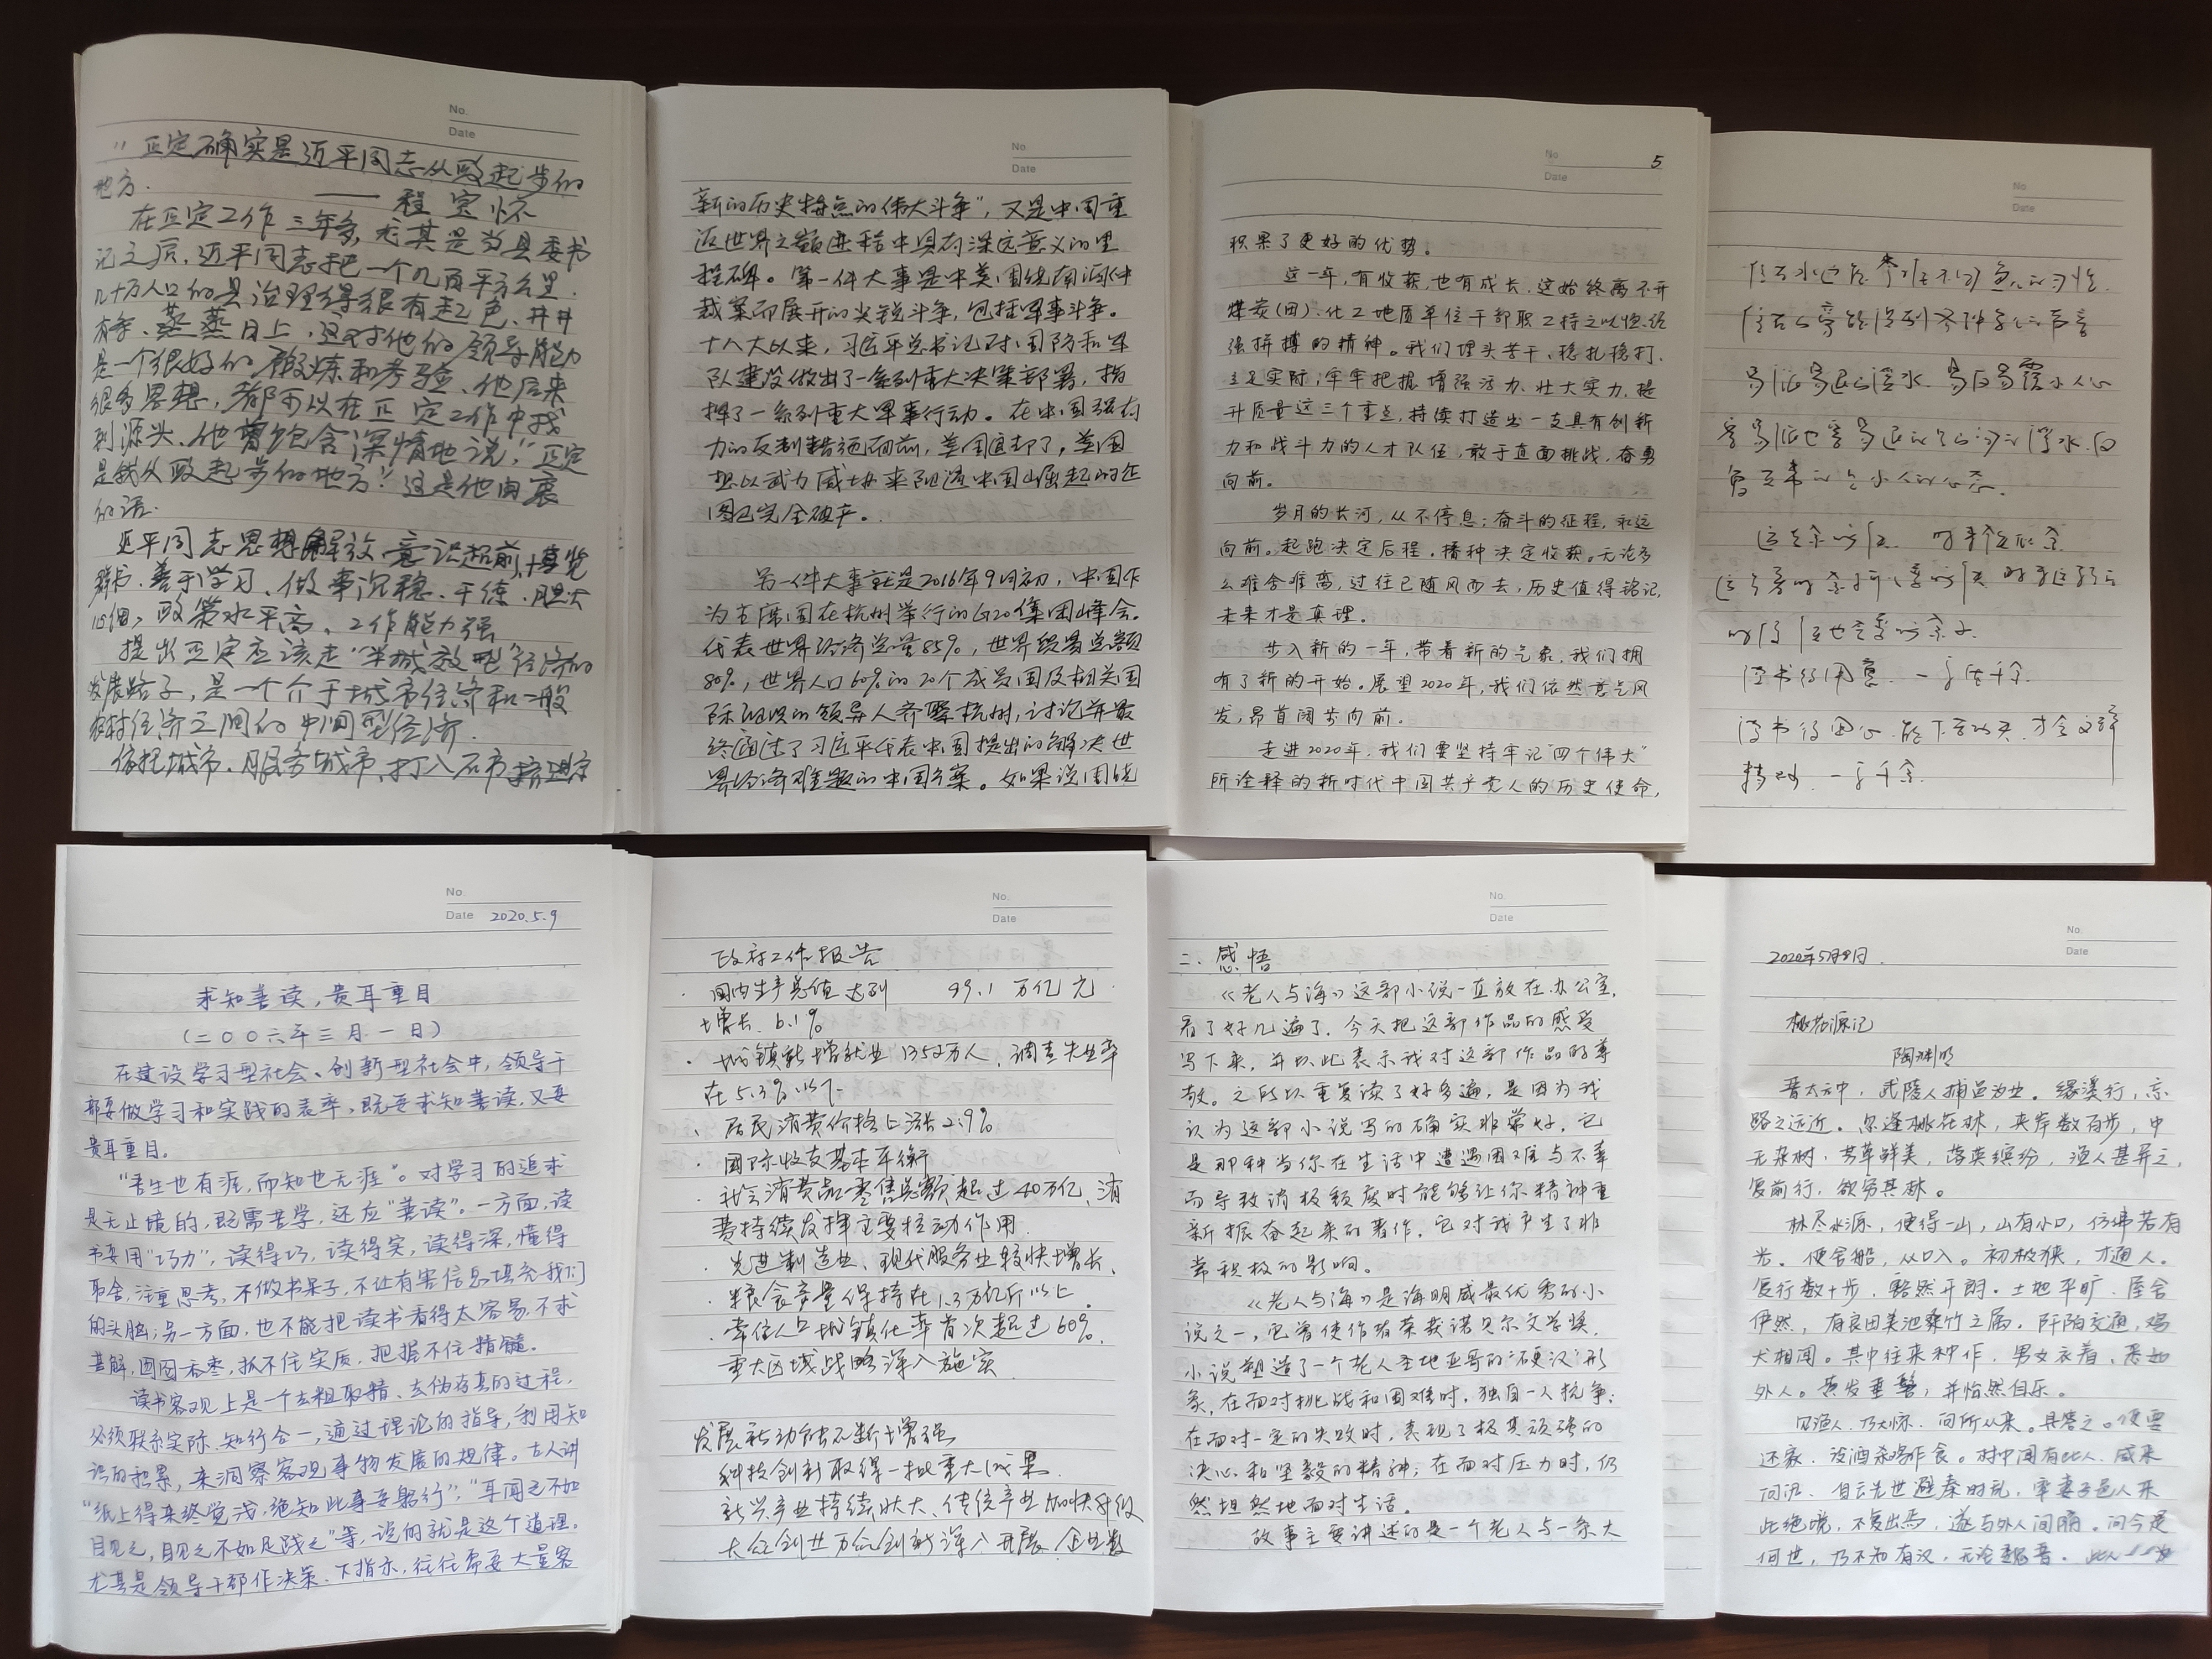 No.
Date
"正定确实是近平同志从政起步的
地方.
—— 程宝怀
在正定工作三年多,尤其是当县委书
记之后,近平同志把一个几百平方公里.
几十万人口的县治理得很有起色、井井
有条、蒸蒸日上,这对他的领导能力
是一个很好的锻炼和考验、他后来
很多思想,都可以在正定工作中找
到源头、他曾饱含深情地说:"正定
是我从政起步的地方."这是他由衷
的话.
近平同志思想解放、意识超前、博览
群书、善于学习、做事沉稳、干练、胆大
心细,政策水平高、工作能力强
提出正定应该走"半城郊型"经济的
发展路子,是一个介于城市经济和一般
农村经济之间的中间型经济.
依托城市、服务城市、打入石市、挤进京
No.
Date
新的历史特点的伟大斗争",又是中国重
返世界之巅进程中具有深远意义的里
程碑。第一件大事是中美围绕南海仲
裁案而展开的尖锐斗争,包括军事斗争。
十八大以来,习近平总书记对国防和军
队建设做出了一系列重大决策部署,指
挥了一系列重大军事行动。在中国强有
力的反制措施面前,美国退却了,美国
想以武力威胁来阻遏中国崛起的企
图已完全破产。
另一件大事就是2016年9月初,中国作
为主席国在杭州举行的G20集团峰会。
代表世界经济总量85%,世界贸易总额
80%,世界人口60%的20个成员国及相关国
际组织的领导人齐聚杭州,讨论并最
终通过了习近平代表中国提出的解决世
界经济难题的中国方案。如果说围绕
No.
5
Date
积累了更好的优势。
这一年,有收获,也有成长,这始终离不开
煤炭(田)、化工地质单位干部职工持之以恒、经
强拼搏的精神。我们埋头苦干、稳扎稳打、
立足实际,牢牢把握增强活力、壮大实力、提
升质量这三个重点,持续打造出一支具有创新
力和战斗力的人才队伍,敢于直面挑战,奋勇
向前。
岁月的长河,从不停息;奋斗的征程,永远
向前。起跑决定后程,播种决定收获。无论多
么难舍难离,过往已随风而去,历史值得铭记,
未来才是真理。
步入新的一年,带着新的气象,我们拥
有了新的开始。展望2020年,我们依然意气风
发,昂首阔步向前。
走进2020年,我们要坚持牢记"四个伟大"
所诠释的新时代中国共产党人的历史使命,
No.
Date
No.
Date 2020.5.9
求知善读,贵耳重目
(二〇〇六年三月一日)
在建设学习型社会、创新型社会中,领导干
部要做学习和实践的表率,既要求知善读,又要
贵耳重目。
"吾生也有涯,而知也无涯"。对学习的追求
是无止境的,既需苦学,还应"善读"。一方面,读
书要用"巧力",读得巧,读得实,读得深,懂得
取舍,注重思考,不做书呆子,不让有害信息填充我们
的头脑;另一方面,也不能把读书看得太容易,不求
甚解,囫囵吞枣,抓不住实质,把握不住精髓。
读书客观上是一个去粗取精、去伪存真的过程,
必须联系实际、知行合一,通过理论的指导,利用知
识的积累,来洞察客观事物发展的规律。古人讲
"纸上得来终觉浅,绝知此事要躬行","耳闻之不如
目见之,目见之不如足践之"等,说的就是这个道理。
尤其是领导干部作决策、下指示,往往需要大量客
No.
Date
政府工作报告
· 国内生产总值达到 99.1 万亿元
增长 6.1%
· 城镇新增就业 1352万人、调查失业率
在5.3%以下
、居民消费价格上涨2.9%
· 国际收支基本平衡
· 社会消费品零售总额超过40万亿,消
费持续发挥主要拉动作用.
· 先进制造业、现代服务业较快增长、
· 粮食产量保持在1.3万亿斤以上.
· 常住人口城镇化率首次超过60%.
重大区域战略深入施实
发展新动能不断增强
科技创新取得一批重大成果.
新兴产业持续壮大、传统产业加快升级
大众创业万众创新深入开展、企业数
No.
Date
二、感悟
《老人与海》这部小说一直放在办公室,
看了好几遍了.今天把这部作品的感受
写下来,并以此表示我对这部作品的尊
敬。之所以重复读了好多遍,是因为我
认为这部小说写的确实非常好.它
是那种当你在生活中遭遇困难与不幸
而导致消极颓废时能够让你精神重
新振奋起来的著作,它对我产生了非
常积极的影响。
《老人与海》是海明威最优秀的小
说之一,它曾使作者荣获诺贝尔文学奖.
小说塑造了一个老人圣地亚哥的"硬汉"形
象,在面对挑战和困难时,独自一人抗争;
在面对一定的失败时,表现了极其顽强的
决心和坚毅的精神;在面对压力时,仍
然坦然地面对生活。
故事主要讲述的是一个老人与一条大
No.
Date
2020年5月9日.
桃花源记
陶渊明
晋太元中,武陵人捕鱼为业。缘溪行,忘
路之远近。忽逢桃花林,夹岸数百步,中
无杂树,芳草鲜美,落英缤纷,渔人甚异之,
复前行,欲穷其林。
林尽水源,便得一山,山有小口,仿佛若有
光。便舍船,从口入。初极狭,才通人。
复行数十步,豁然开朗。土地平旷,屋舍
俨然,有良田美池桑竹之属。阡陌交通,鸡
犬相闻。其中往来种作,男女衣着,悉如
外人。黄发垂髫,并怡然自乐。
见渔人,乃大惊,问所从来。具答之。便要
还家,设酒杀鸡作食。村中闻有此人,咸来
问讯。自云先世避秦时乱,率妻子邑人来
此绝境,不复出焉,遂与外人间隔。问今是
何世,乃不知有汉,无论魏晋。此人